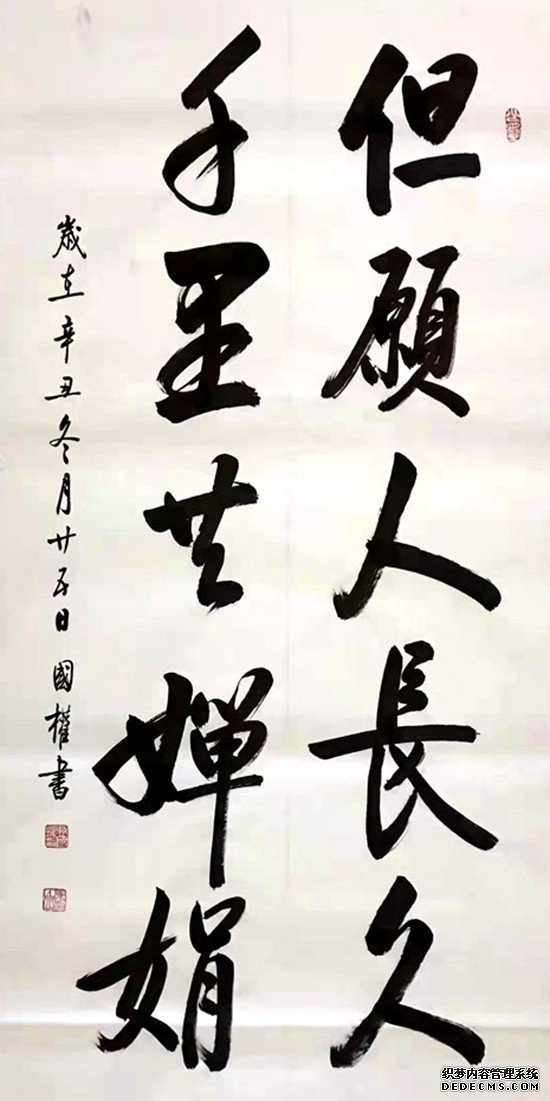 但願人長久
千里共嬋娟
歲在辛丑冬月廿五日國權書
织梦内容管理系统
DEDECMS.COM